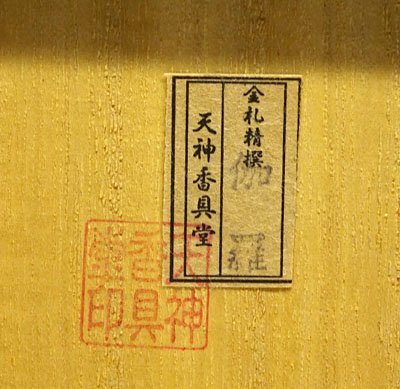 金札精撰
伽羅
天神香具堂
天神
香具
堂印